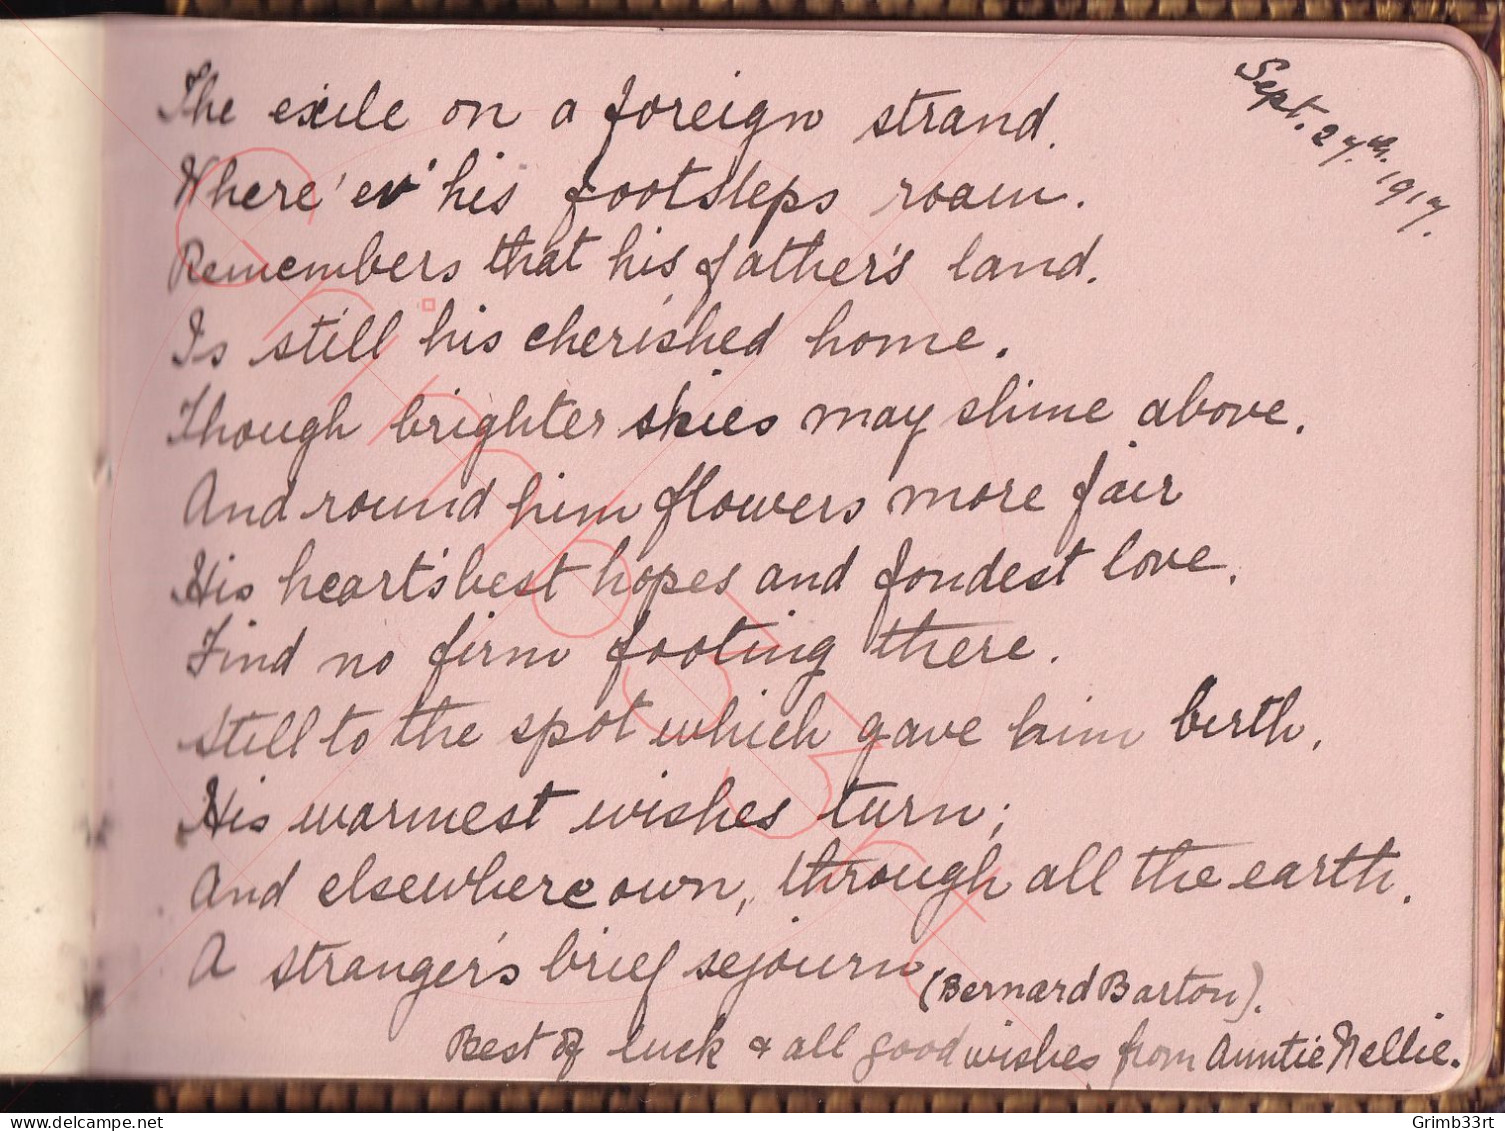 Sept. 27th. 1917.
The exile on a foreign strand.
Where'er his footsteps roam.
Remembers that his father's land.
Is still his cherished home.
Though brighter skies may shine above.
And round him flowers more fair
His heart's best hopes and fondest love.
Find no firm footing there.
Still to the spot which gave him birth.
His warmest wishes turn;
And elsewhere own, through all the earth.
A stranger's brief sejourn
(Bernard Barton).
Best of luck & all good wishes from Auntie Nellie.
Grimb33rt
Grimb33rt